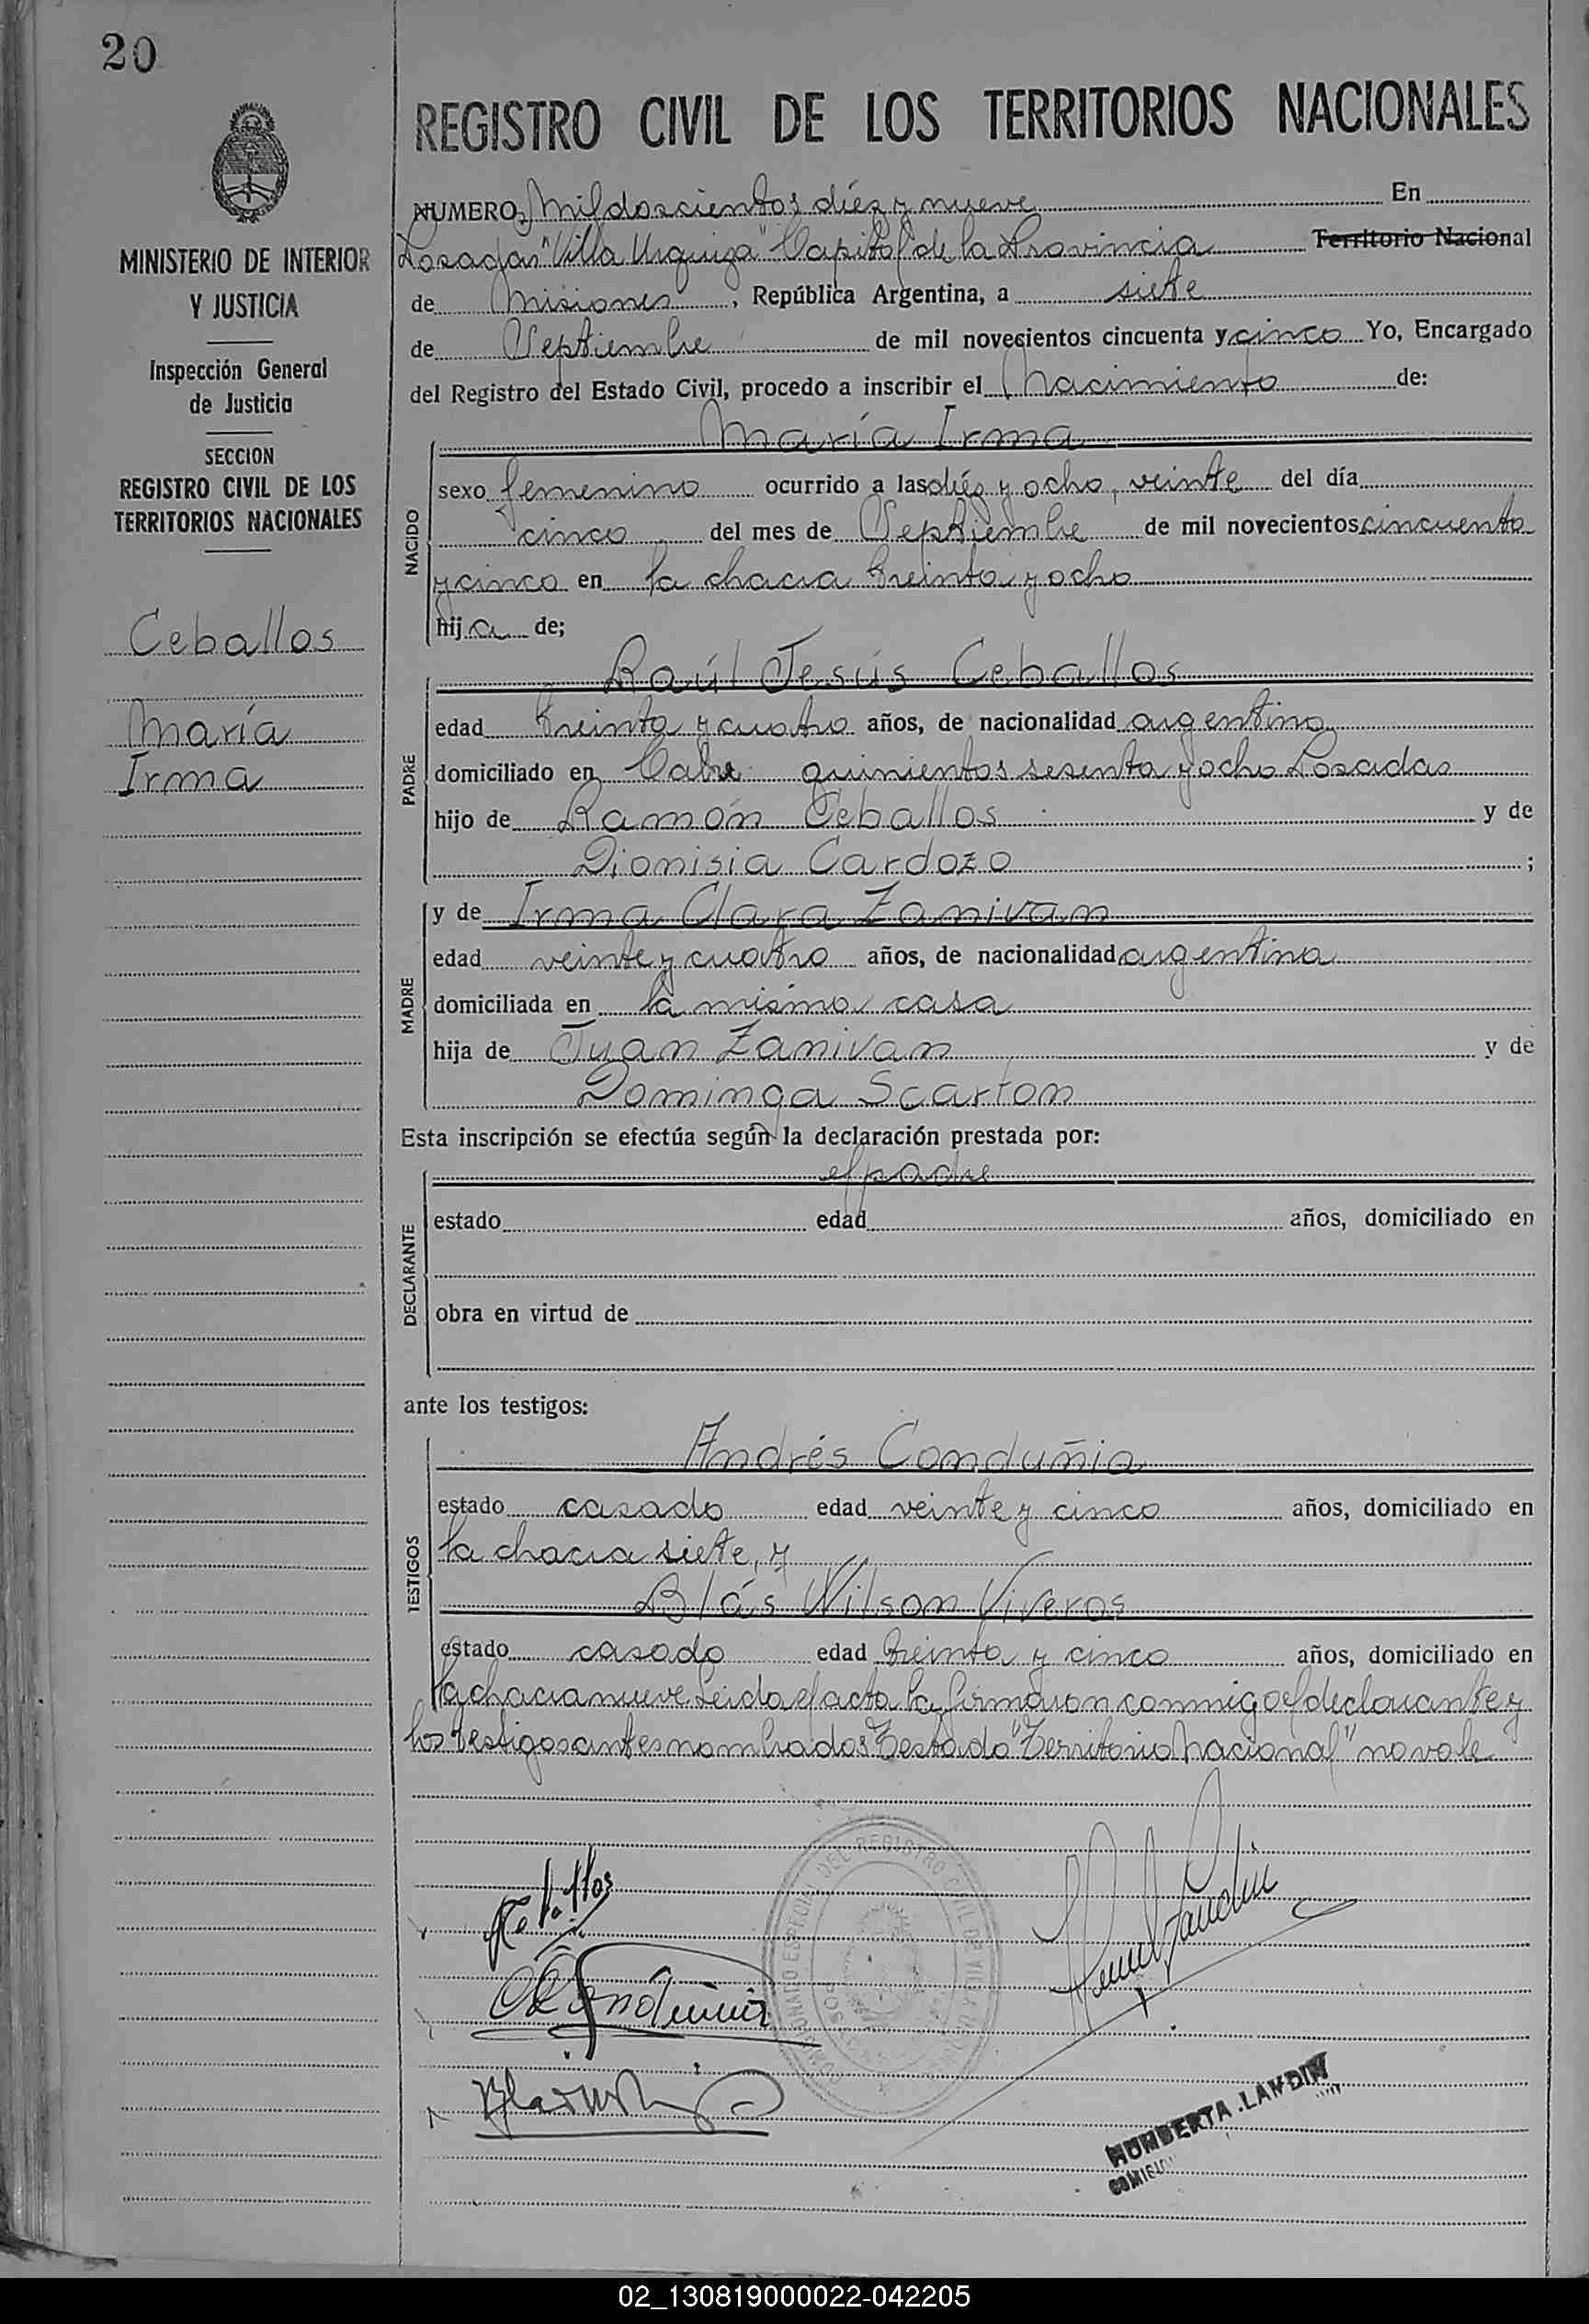 20
MINISTERIO DE INTERIOR
Y JUSTICIA
Inspección General
de Justicia
SECCION
REGISTRO CIVIL DE LOS
TERRITORIOS NACIONALES
Ceballos
María
Irma
REGISTRO CIVIL DE LOS TERRITORIOS NACIONALES
NUMERO Mil doscientos diéz y nueve En
Posadas "Villa Urquiza" Capital de la Provincia Territorio Nacional
de Misiones, República Argentina, a siete
de Septiembre de mil novecientos cincuenta y cinco Yo, Encargado
del Registro del Estado Civil, procedo a inscribir el Nacimiento de:
NACIDO
María Irma
sexo femenino ocurrido a las diéz y ocho, veinte del día
cinco del mes de Septiembre de mil novecientos cincuenta
y cinco en la chacra treinta y ocho
hija de;
PADRE
Raúl Jesús Ceballos
edad treinta y cuatro años, de nacionalidad argentina
domiciliado en quinientos sesenta y ocho Posadas
hijo de Ramón Ceballos y de
Dionisia Cardozo ;
MADRE
y de Irma Clara Zanivan
edad veinte y cuatro años, de nacionalidad argentina
domiciliada en la misma casa
hija de Juan Zanivan y de
Dominga Scarton
Esta inscripción se efectúa según la declaración prestada por:
DECLARANTE
el padre
estado edad años, domiciliado en
obra en virtud de
ante los testigos:
TESTIGOS
Andrés Conduñia
estado casado edad veinte y cinco años, domiciliado en
la chacra siete, y
Blás Wilson Viveros
estado casado edad treinta y cinco años, domiciliado en
la chacra nueve. Leída el acta la firmaron conmigo el declarante y
los testigos antes nombrados Testado "Territorio Nacional" no vale
Ceballos
DEL REGISTRO CIVIL DE VILLA
HUMBERTA LANDIN
02_130819000022-042205